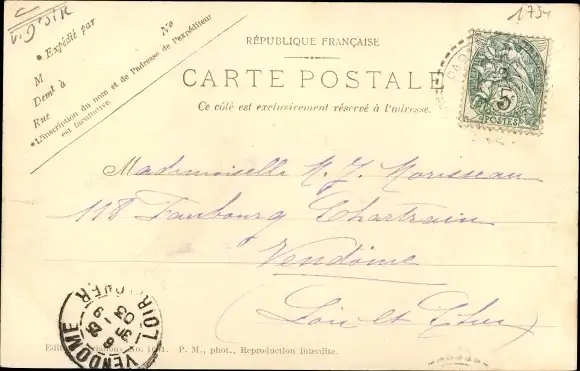 1754
• Expédié par
No
M
Demt à
Rue
• L'inscription du nom et de l'adresse de l'expéditeur
est facultative.
RÉPUBLIQUE FRANÇAISE
CARTE POSTALE
Ce côté est exclusivement réservé à l'adresse.
5
POSTES
Mademoiselle M. J. Morisseau
118 Faubourg Chartrain
Vendôme
(Loir et Cher)
VENDOME
LOIR
CHER
03
P. M., phot., Reproduction interdite.